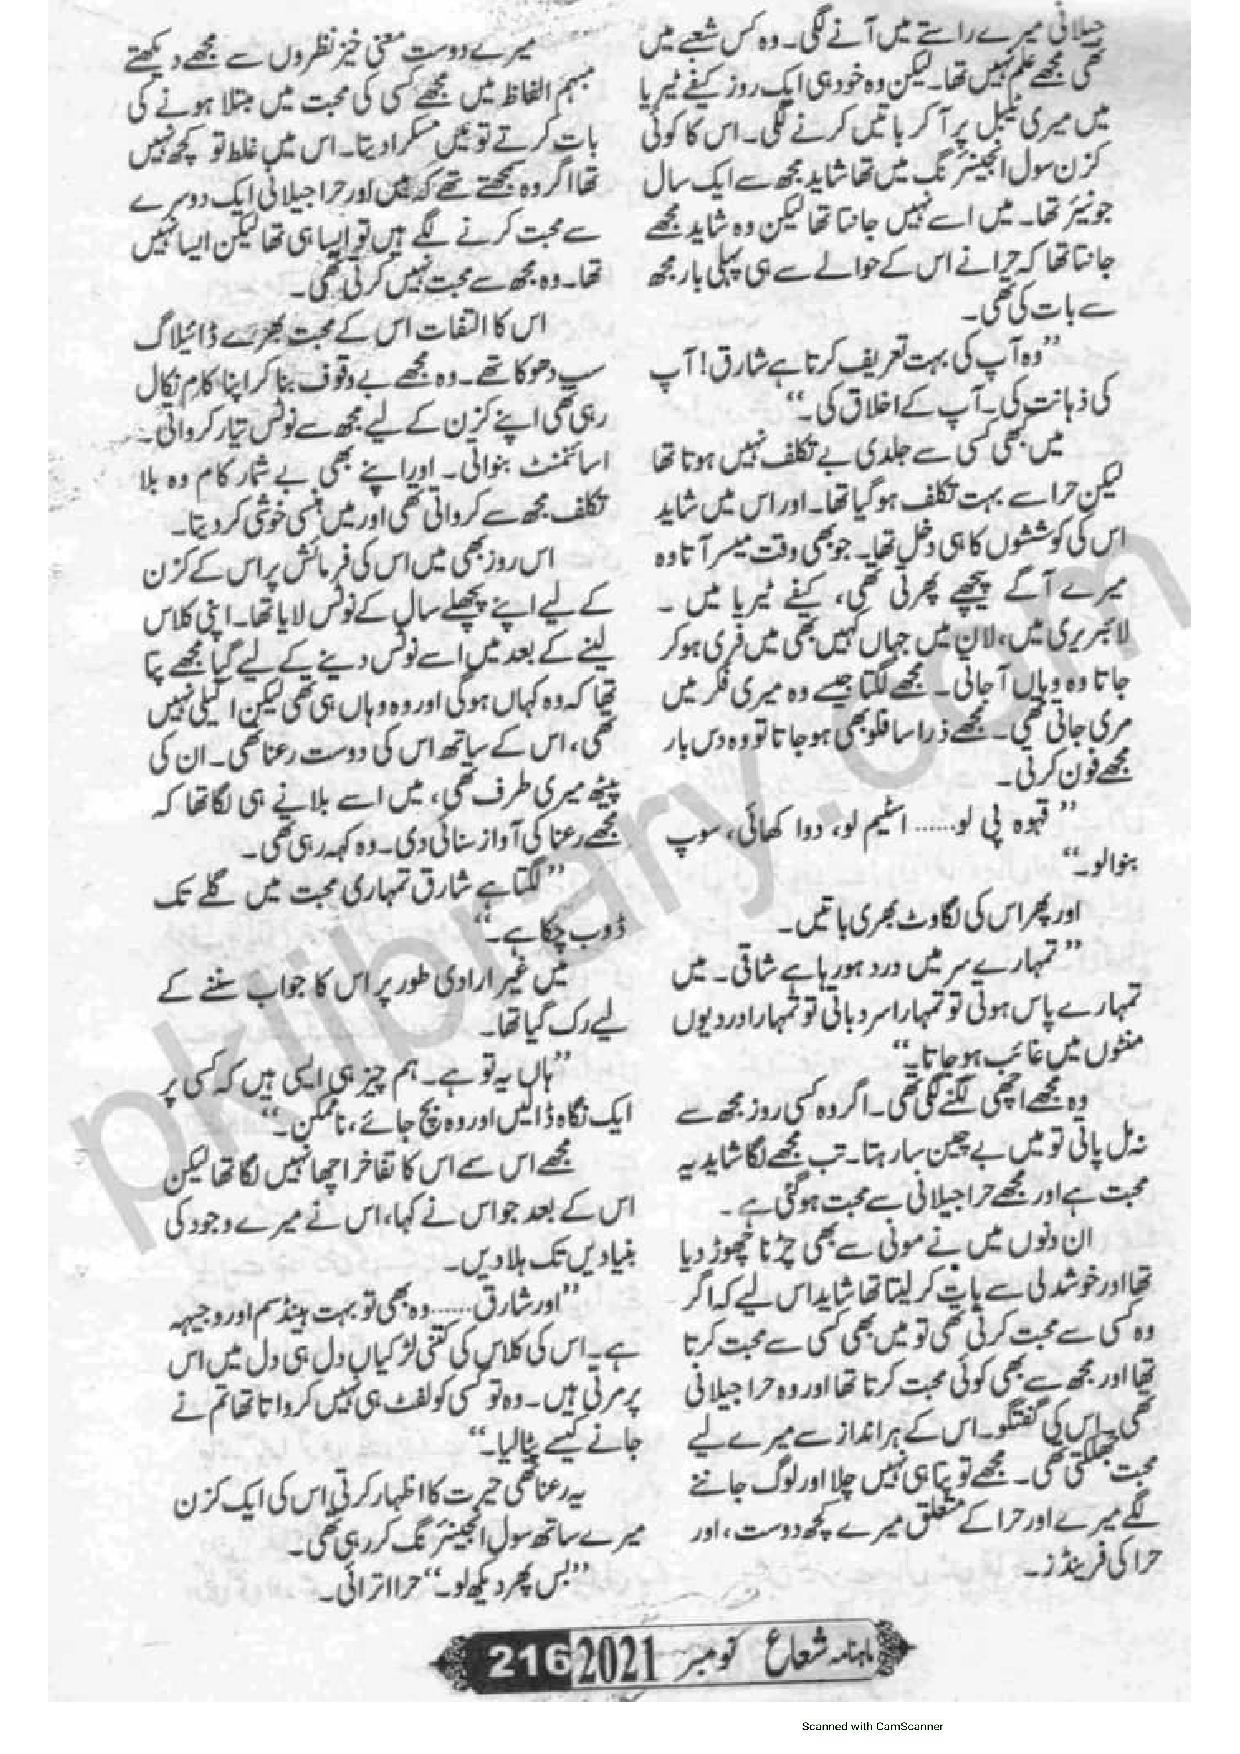 جیلانی میرے راستے میں آنے لگی۔ وہ کس شعبے میں
تھی مجھے علم نہیں تھا۔ لیکن وہ خود ہی ایک روز کیفے ٹیریا
میں میری ٹیبل پر آ کر باتیں کرنے لگی۔ اس کا کوئی
کزن سول انجینئرنگ میں تھا شاید مجھ سے ایک سال
جونیئر تھا۔ میں اسے نہیں جانتا تھا لیکن وہ شاید مجھے
جانتا تھا کہ حرا نے اس کے حوالے سے ہی پہلی بار مجھ
سے بات کی تھی۔
”وہ آپ کی بہت تعریف کرتا ہے شارق! آپ
کی ذہانت کی۔ آپ کے اخلاق کی۔“
میں بھی کسی سے جلدی بے تکلف نہیں ہوتا تھا
لیکن حرا سے بہت تکلف ہو گیا تھا۔ اور اس میں شاید
اس کی کوششوں کا ہی دخل تھا۔ جو بھی وقت میسر آتا وہ
میرے آگے پیچھے پھرتی تھی، کیفے ٹیریا میں۔
لائبریری میں، لان میں جہاں کہیں بھی میں فری ہو کر
جاتا وہ وہاں آ جاتی۔ مجھے لگتا جیسے وہ میری فکر میں
مری جاتی تھی۔ مجھے ذرا سا فلو بھی ہو جاتا تو وہ دس بار
مجھے فون کرتی۔
”قہوہ پی لو...... اسٹیم لو، دوا کھائی، سوپ
بنوا لو۔“
اور پھر اس کی لگاوٹ بھری باتیں۔
”تمہارے سر میں درد ہو رہا ہے شاقی۔ میں
تمہارے پاس ہوتی تو تمہارا سر دباتی تو تمہارا درد یوں
منٹوں میں غائب ہو جاتا۔“
وہ مجھے اچھی لگنے لگی تھی۔ اگر وہ کسی روز مجھ سے
نہ مل پاتی تو میں بے چین سا رہتا۔ تب مجھے لگا شاید یہ
محبت ہے اور مجھے حرا جیلانی سے محبت ہو گئی ہے۔
ان دنوں میں نے مونی سے بھی چڑنا چھوڑ دیا
تھا اور خوشدلی سے بات کر لیتا تھا شاید اس لیے کہ اگر
وہ کسی سے محبت کرتی تھی تو میں بھی کسی سے محبت کرتا
تھا اور مجھ سے بھی کوئی محبت کرتا تھا اور وہ حرا جیلانی
تھی۔ اس کی گفتگو۔ اس کے ہر انداز سے میرے لیے
محبت جھلکتی تھی۔ مجھے تو پتا ہی نہیں چلا اور لوگ جاننے
لگے میرے اور حرا کے متعلق میرے کچھ دوست، اور
حرا کی فرینڈز۔
میرے دوست معنی خیز نظروں سے مجھے دیکھتے
مبہم الفاظ میں مجھے کسی کی محبت میں مبتلا ہونے کی
بات کرتے تو میں مسکرا دیتا۔ اس میں غلط تو کچھ نہیں
تھا اگر وہ سمجھتے تھے کہ میں اور حرا جیلانی ایک دوسرے
سے محبت کرنے لگے ہیں تو ایسا ہی تھا لیکن ایسا نہیں
تھا۔ وہ مجھ سے محبت نہیں کرتی تھی۔
اس کا التفات اس کے محبت بھرے ڈائیلاگ
سب دھوکا تھے۔ وہ مجھے بے وقوف بنا کر اپنا کام نکال
رہی تھی اپنے کزن کے لیے مجھ سے نوٹس تیار کرواتی۔
اسائنمنٹ بنواتی۔ اور اپنے بھی بے شمار کام وہ بلا
تکلف مجھ سے کرواتی تھی اور میں ہنسی خوشی کر دیتا۔
اس روز بھی میں اس کی فرمائش پر اس کے کزن
کے لیے اپنے پچھلے سال کے نوٹس لایا تھا۔ اپنی کلاس
لینے کے بعد میں اسے نوٹس دینے کے لیے گیا مجھے پتا
تھا کہ وہ کہاں ہو گی اور وہ وہاں ہی تھی لیکن اکیلی نہیں
تھی، اس کے ساتھ اس کی دوست رعنا تھی۔ ان کی
پیٹھ میری طرف تھی، میں اسے بلانے ہی لگا تھا کہ
مجھے رعنا کی آواز سنائی دی۔ وہ کہہ رہی تھی۔
”لگتا ہے شارق تمہاری محبت میں گلے تک
ڈوب چکا ہے۔“
میں غیر ارادی طور پر اس کا جواب سننے کے
لیے رک گیا تھا۔
”ہاں یہ تو ہے۔ ہم چیز ہی ایسی ہیں کہ کسی پر
ایک نگاہ ڈالیں اور وہ بچ جائے، ناممکن۔“
مجھے اس سے اس کا تفاخر اچھا نہیں لگا تھا لیکن
اس کے بعد جو اس نے کہا، اس نے میرے وجود کی
بنیادیں تک ہلا دیں۔
”اور شارق...... وہ بھی تو بہت ہینڈسم اور وجیہہ
ہے۔ اس کی کلاس کی کتنی لڑکیاں دل ہی دل میں اس
پر مرتی ہیں۔ وہ تو کسی کو لفٹ ہی نہیں کرواتا تھا تم نے
جانے کیسے پٹا لیا۔“
یہ رعنا تھی حیرت کا اظہار کرتی اس کی ایک کزن
میرے ساتھ سول انجینئرنگ کر رہی تھی۔
”بس پھر دیکھ لو۔“ حرا اترائی۔
ماہنامہ شعاع نومبر 2021 216
pklibrary.com
Scanned with CamScanner